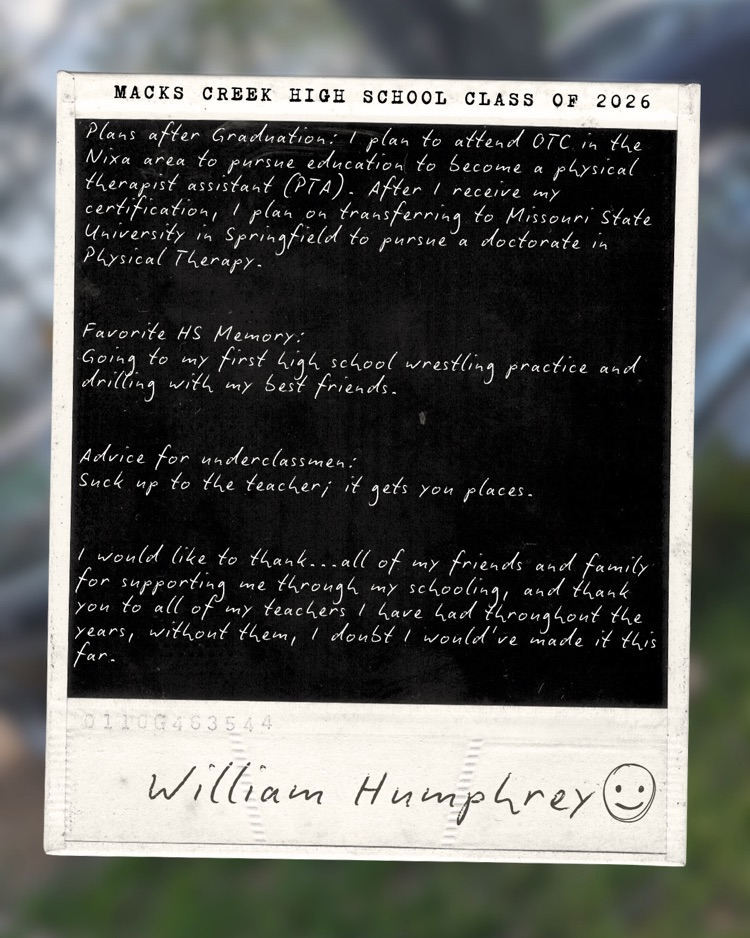 MACKS CREEK HIGH SCHOOL CLASS OF 2026
Plans after Graduation: I plan to attend OTC in the
Nixa area to pursue education to become a physical
therapist assistant (PTA). After I receive my
certification, I plan on transferring to Missouri State
University in Springfield to pursue a doctorate in
Physical Therapy.
Favorite HS Memory:
Going to my first high school wrestling practice and
drilling with my best friends.
Advice for underclassmen:
Suck up to the teacher; it gets you places.
I would like to thank...all of my friends and family
for supporting me through my schooling, and thank
you to all of my teachers I have had throughout the
years, without them, I doubt I would've made it this
far.
0110G463544
William Humphrey